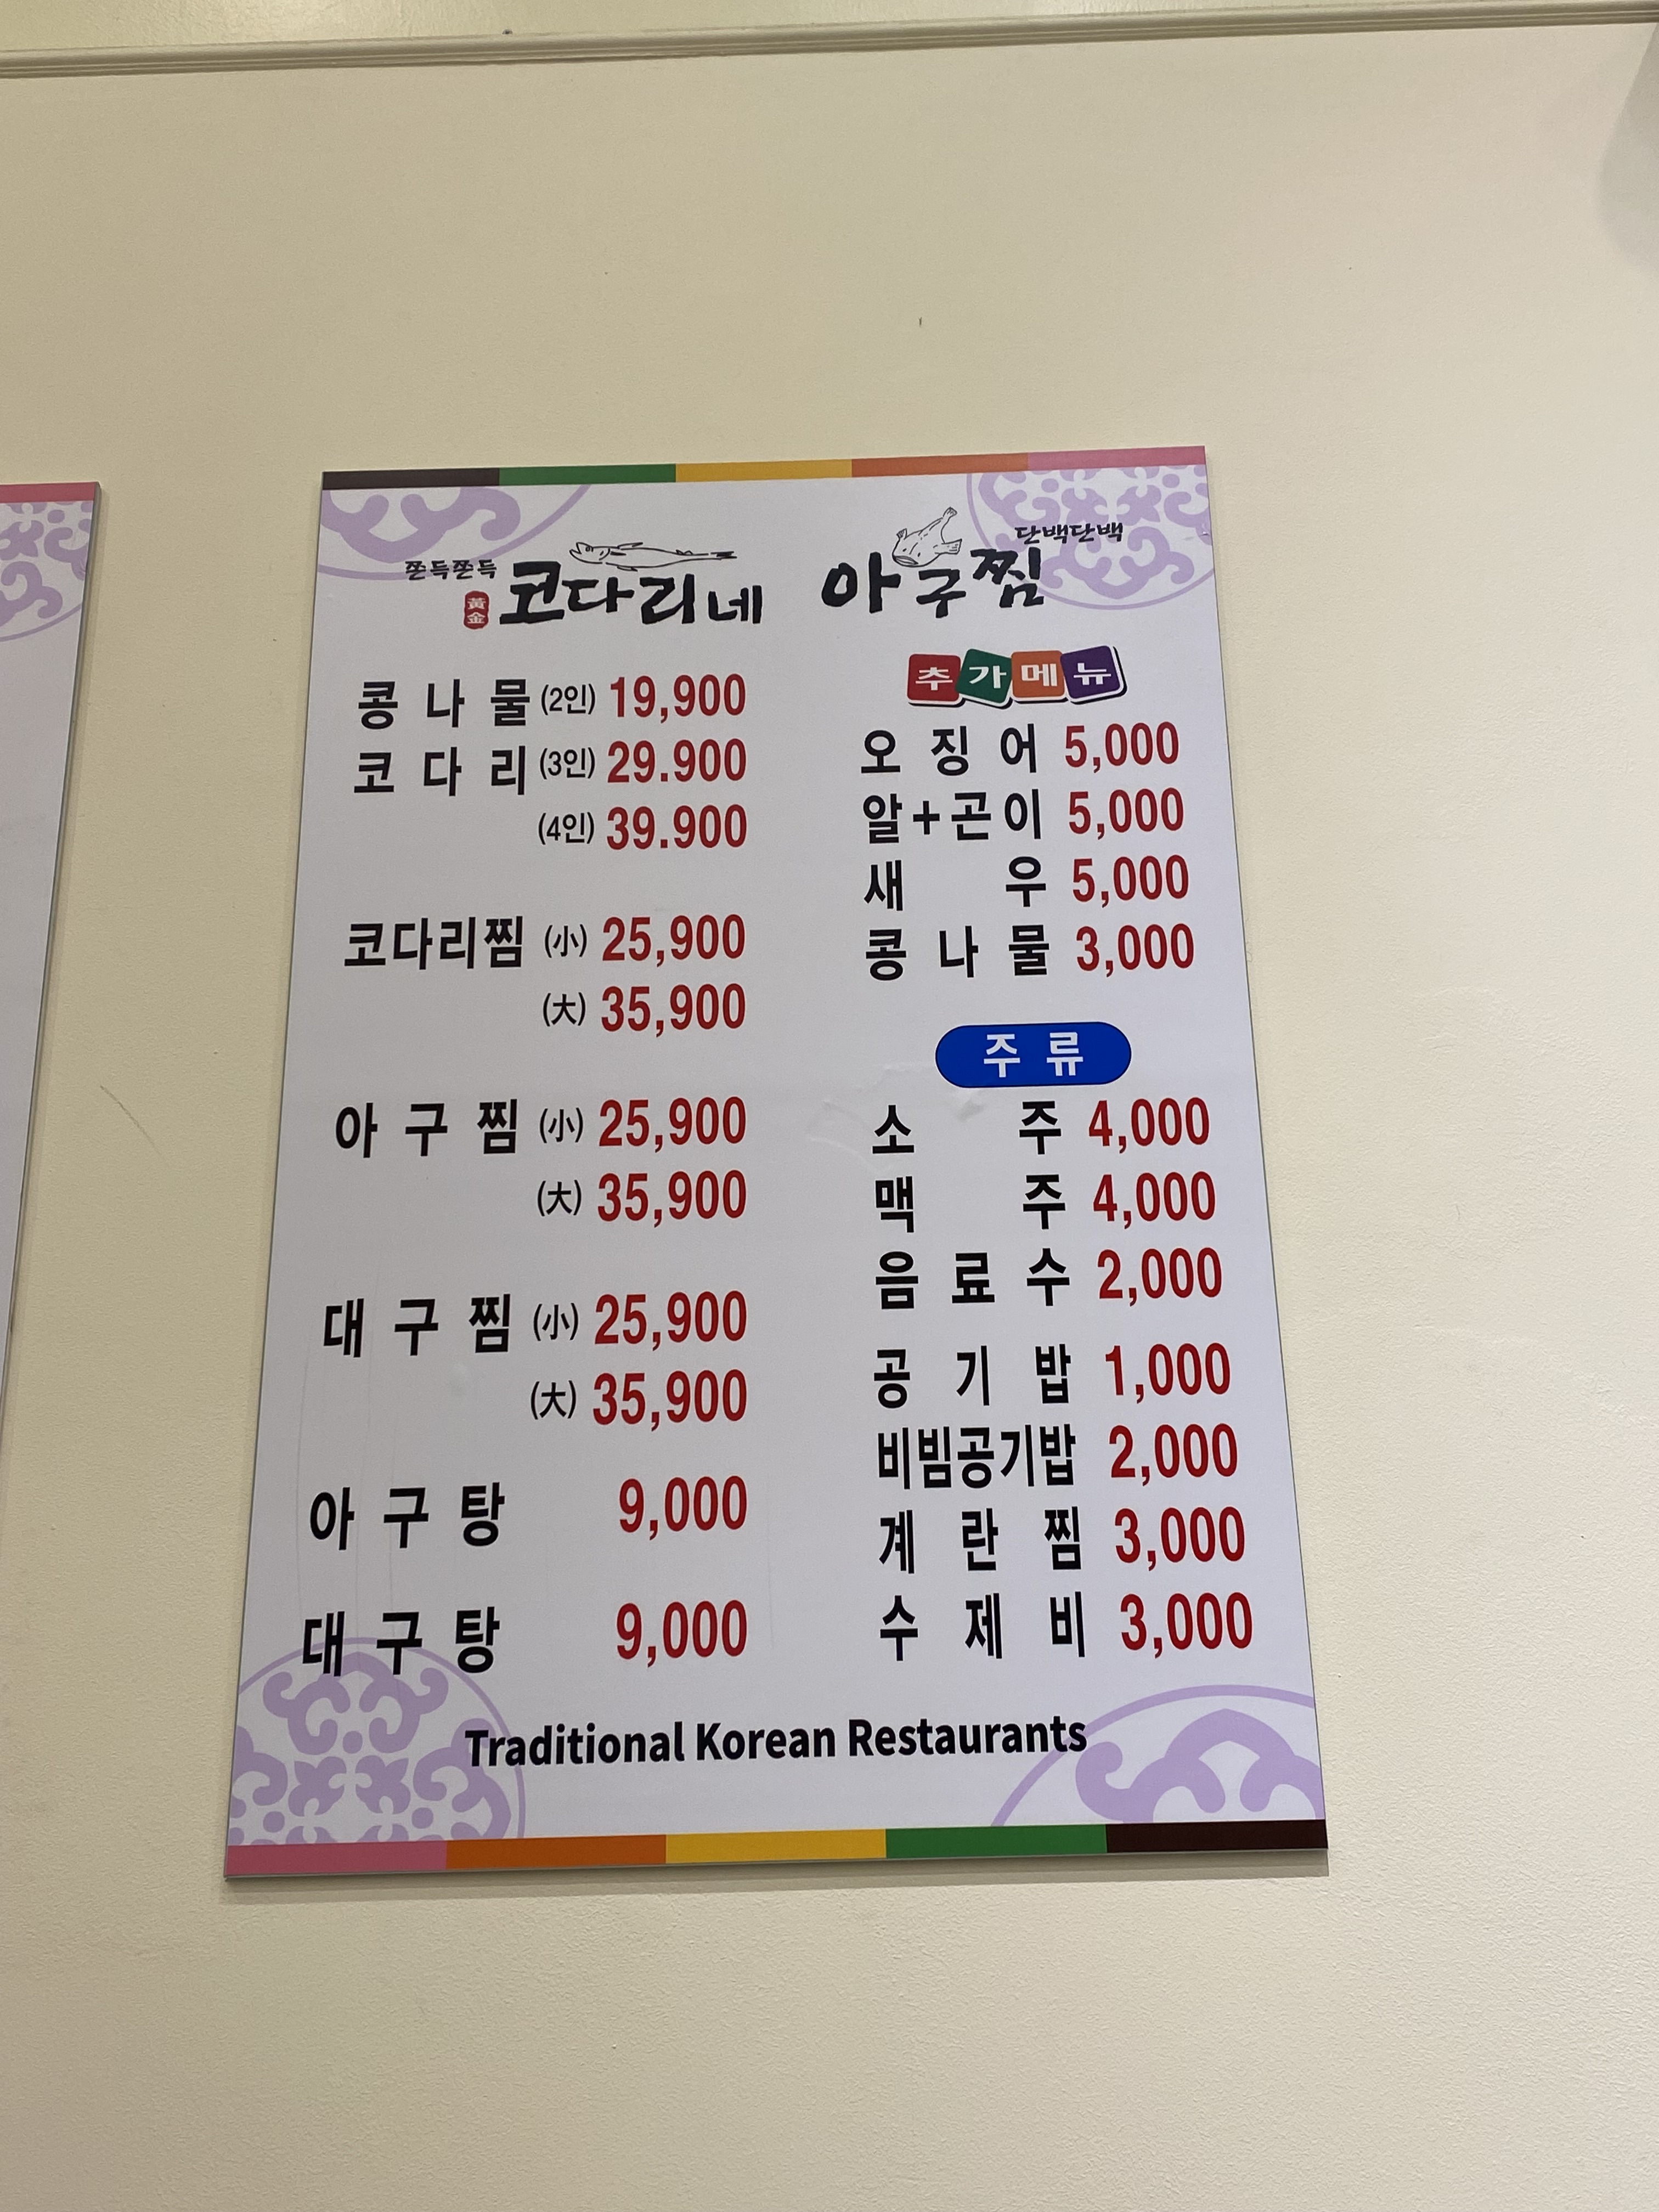 쫀득쫀득
黃金 코다리네
단백단백
아구찜
콩나물 (2인) 19,900
코다리 (3인) 29.900
(4인) 39.900
코다리찜 (小) 25,900
(大) 35,900
아구찜 (小) 25,900
(大) 35,900
대구찜 (小) 25,900
(大) 35,900
아구탕 9,000
대구탕 9,000
추가메뉴
오징어 5,000
알+곤이 5,000
새우 5,000
콩나물 3,000
주류
소주 4,000
맥주 4,000
음료수 2,000
공기밥 1,000
비빔공기밥 2,000
계란찜 3,000
수제비 3,000
Traditional Korean Restaurants